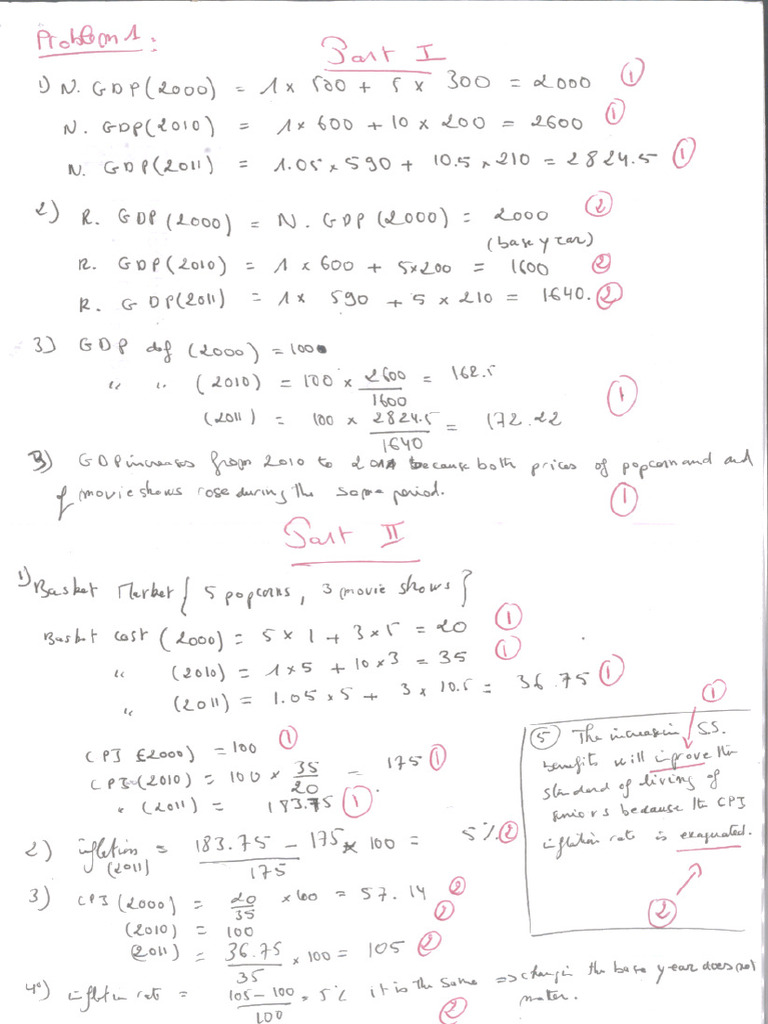 Problem 1:
Part I
1) N. GDP(2000) = 1 x 500 + 5 x 300 = 2000 (1)
N. GDP(2010) = 1 x 600 + 10 x 200 = 2600 (1)
N. GDP(2011) = 1.05 x 590 + 10.5 x 210 = 2824.5 (1)
2) R. GDP(2000) = N. GDP(2000) = 2000 (2)
(base year)
R. GDP(2010) = 1 x 600 + 5x200 = 1600 (2)
R. GDP(2011) = 1 x 590 + 5 x 210 = 1640. (2)
3) GDP def (2000) = 100
" " (2010) = 100 x 2600/1600 = 162.5
(2011) = 100 x 2824.5/1640 = 172.22 (1)
3) GDP increases from 2010 to 2011 because both prices of popcorn and and
of movie shows rose during the same period. (1)
Part II
1) Basket Market { 5 popcorns, 3 movie shows }
Basket cost (2000) = 5 x 1 + 3 x 5 = 20 (1)
" (2010) = 1 x 5 + 10 x 3 = 35 (1)
" (2011) = 1.05 x 5 + 3 x 10.5 = 36.75 (1)
CPI (2000) = 100 (1)
CPI (2010) = 100 x 35/20 = 175 (1)
" (2011) = 183.75 (1)
2) inflation (2011) = 183.75 - 175/175 x 100 = 5%. (2)
3) CPI (2000) = 20/35 x 100 = 57.14 (2)
(2010) = 100 (2)
(2011) = 36.75/35 x 100 = 105 (2)
4°) inflation rate = 105-100/100 = 5% it is the same => change in the base year does not
matter. (2)
(5) The increase in S.S. (1)
benefits will improve the
standard of living of
seniors because the CPI
inflation rate is exagurated.
(2)